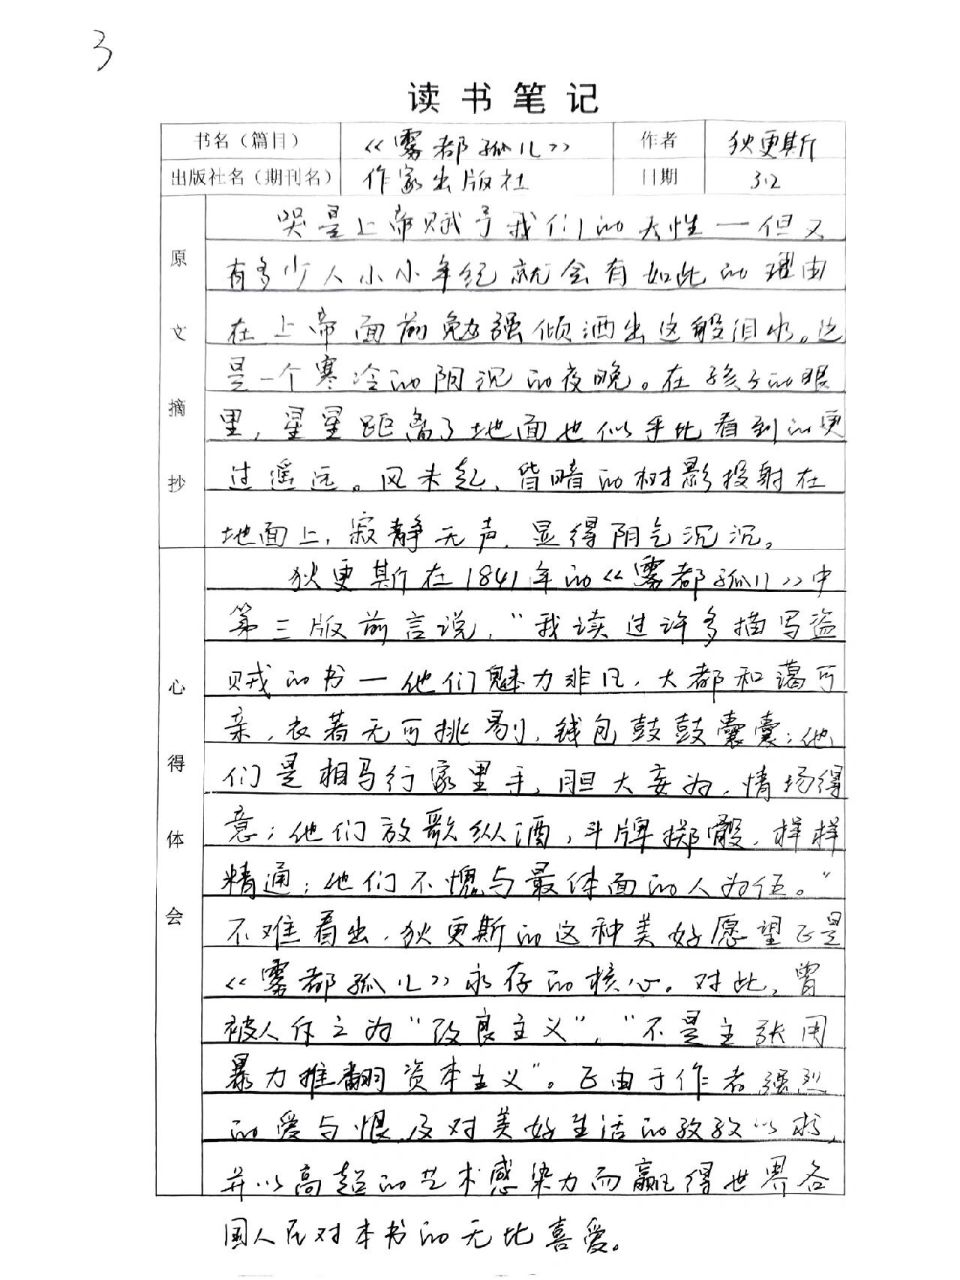 3
读书笔记
书名（篇目） 《雾都孤儿》 作者 狄更斯
出版社名（期刊名） 作家出版社 日期 3.2
原文摘抄
哭是上帝赋予我们的天性—但又
有多少人小小年纪就会有如此的理由
在上帝面前勉强倾洒出这般泪水。这
是一个寒冷的阴沉的夜晚。在孩子的眼
里，星星距离了地面也似乎比看到的更
过遥远。风未起，皆暗的树影投射在
地面上，寂静无声，显得阴气沉沉。
心得体会
狄更斯在1841年的《雾都孤儿》中
第三版前言说，“我读过许多描写盗
贼的书—他们魅力非凡，大都和蔼可
亲，衣着无可挑剔，钱包鼓鼓囊囊；他
们是相马行家里手，胆大妄为，情场得
意；他们放歌纵酒，斗牌掷骰，样样
精通；他们不愧与最体面的人为伍。”
不难看出，狄更斯的这种美好愿望正是
《雾都孤儿》永存的核心。对此，曾
被人斥之为“改良主义”，“不是主张用
暴力推翻资本主义”。正由于作者强烈
的爱与恨及对美好生活的孜孜以求，
并以高超的艺术感染力而赢得世界各
国人民对本书的无比喜爱。